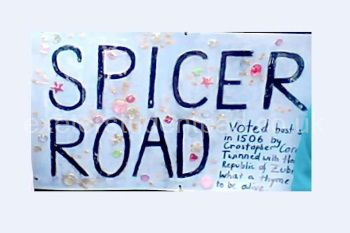 SPICER
ROAD
Voted best s
in 1506 by
Crostopher Cor
Twinned with the
Republic of Zub
What a thyme
to be alive